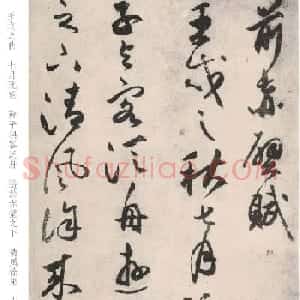 前赤壁賦
壬戌之秋七月
子与客泛舟遊
之下清風徐来
壬戌之秋 七月既望 蘇子與客泛舟 遊於赤壁之下 清風徐來